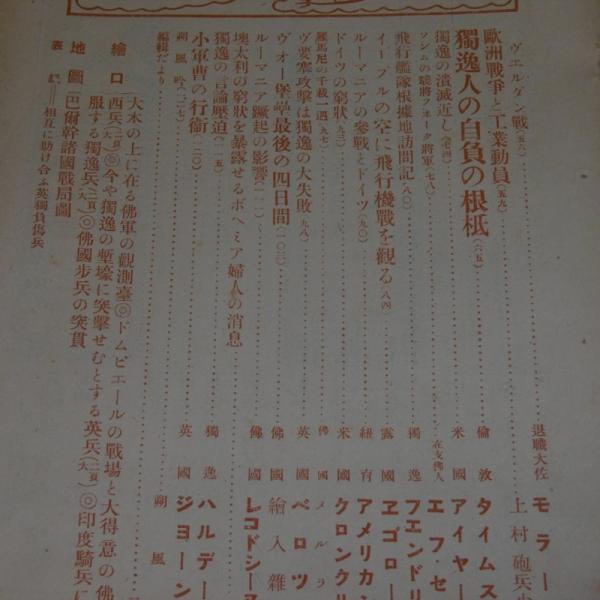 ヴエルダン戰(五六) 退職大佐 モラー
歐洲戰爭と工業動員(五九) 上村砲兵少
獨逸人の自負の根柢(六五) 倫敦 タイムス
獨逸の潰滅近し(七四) 米國 アイヤー
ソンムの驍將フオーク將軍(七八) 在支佛人 エフ・セ
飛行艦隊根據地訪問記(八〇) 獨逸 フエンドリ
イープルの空に飛行機戰を觀る(八四) 露國 エゴロー
ルーマニアの參戰とドイツ(九〇) 紐育 アメリカン
ドイツの窮狀(九三) 米國 クロンクリ
羅馬尼の千載一遇(九七) 佛國 メルラ
ヴ要塞攻擊は獨逸の大失敗(九八) 英國 ベロツ
ヴオー堡壘最後の四日間(一〇三) 佛國 繪入雜
ルーマニア蹶起の影響(一一一) 佛國 レコドシーヌ
墺太利の窮狀を暴露せるボヘミア婦人の消息
獨逸の言論壓迫(一一五) 獨逸 ハルデー
小軍曹の行衞(一二〇) 英國 ジヨーン
朔風吟(一二七) 朔風
編輯だより
繪口 大木の上に在る佛軍の觀測臺◎ドムピエールの戰場と大得意の佛
西兵(二頁大)◎今や獨逸の塹壕に突擊せむとする英兵(二頁大)◎印度騎兵に
服する獨逸兵(二頁大)◎佛國步兵の突貫
地圖 巴爾幹諸國戰局圖
表紙 相互に助け合ふ英獨負傷兵